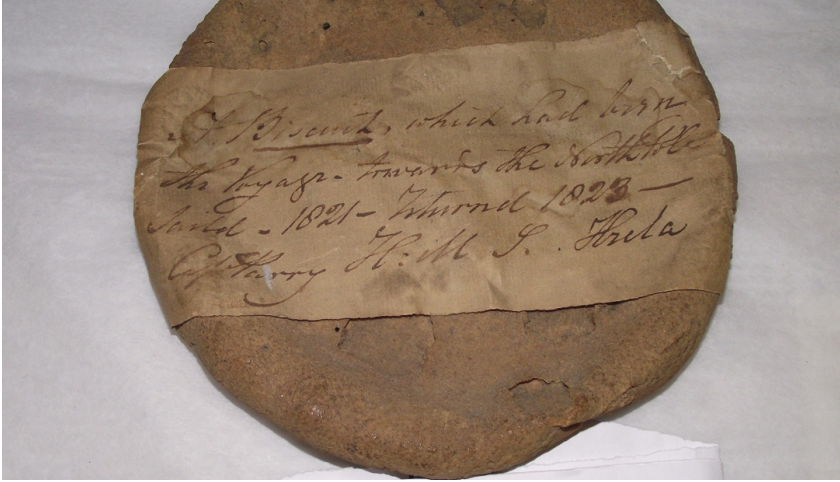 A Biscuit, which had been
the Voyage - towards the North Pole
Saild - 1821 - Returnd 1823 —
Capt Parry H: M S. Hecla